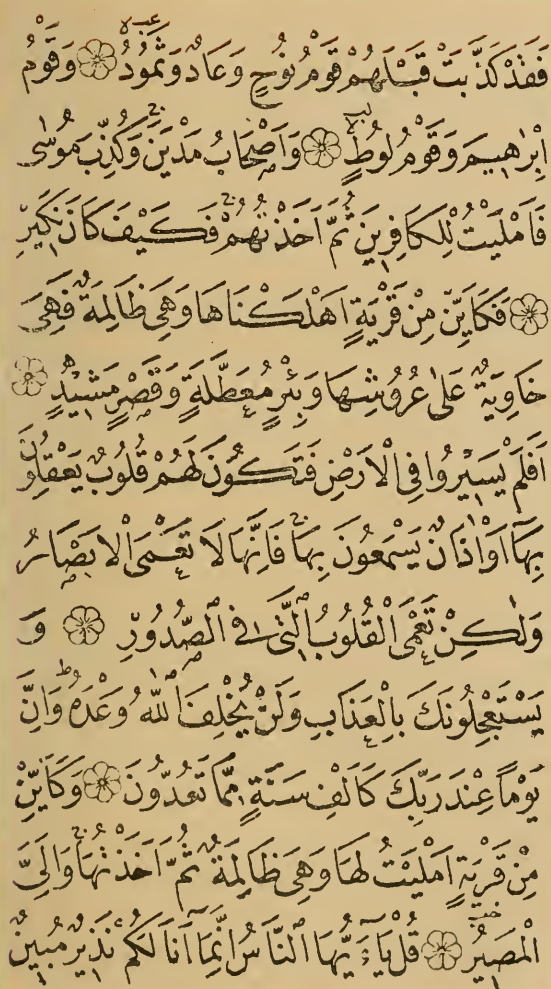 فَقَدْ كَذَّبَتْ قَبْلَهُمْ قَوْمُ نُوحٍ وَعَادٌ وَثَمُودُ ۝ وَقَوْمُ
اِبْرٰهِيمَ وَقَوْمُ لُوطٍ ۝ وَاَصْحَابُ مَدْيَنَ وَكُذِّبَ مُوسٰى
فَاَمْلَيْتُ لِلْكَافِرِينَ ثُمَّ اَخَذْتُهُمْ فَكَيْفَ كَانَ نَكِيرِ
۝ فَكَاَيِّنْ مِنْ قَرْيَةٍ اَهْلَكْنَاهَا وَهِىَ ظَالِمَةٌ فَهِىَ
خَاوِيَةٌ عَلٰى عُرُوشِهَا وَبِئْرٍ مُعَطَّلَةٍ وَقَصْرٍ مَشِيدٍ ۝
اَفَلَمْ يَسِيرُوا فِى الْاَرْضِ فَتَكُونَ لَهُمْ قُلُوبٌ يَعْقِلُونَ
بِهَآ اَوْ اٰذَانٌ يَسْمَعُونَ بِهَا فَاِنَّهَا لَا تَعْمَى الْاَبْصَارُ
وَلٰكِنْ تَعْمَى الْقُلُوبُ الَّتِى فِى الصُّدُورِ ۝ وَ
يَسْتَعْجِلُونَكَ بِالْعَذَابِ وَلَنْ يُخْلِفَ اللّٰهُ وَعْدَهُ وَاِنَّ
يَوْماً عِنْدَ رَبِّكَ كَاَلْفِ سَنَةٍ مِمَّا تَعُدُّونَ ۝ وَكَاَيِّنْ
مِنْ قَرْيَةٍ اَمْلَيْتُ لَهَا وَهِىَ ظَالِمَةٌ ثُمَّ اَخَذْتُهَا وَاِلَىَّ
الْمَصِيرُ ۝ قُلْ يَآءَيُّهَا النَّاسُ اِنَّمَآ اَنَا لَكُمْ نَذِيرٌ مُبِينٌ